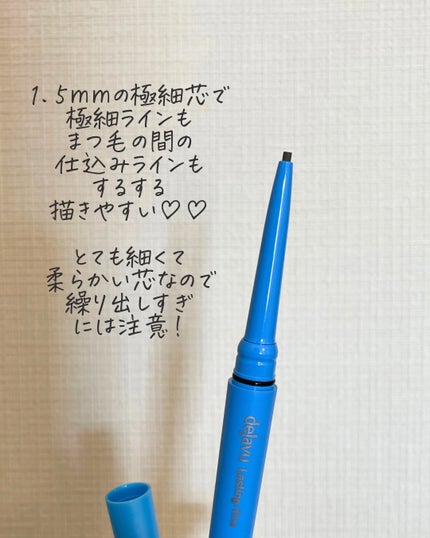 1.5mmの極細芯で
極細ラインも
まつ毛の間の
仕込みラインも
するする
描きやすい♡♡
とても細くて
柔らかい芯なので
繰り出しすぎ
には注意！
dejavu Lasting-fine